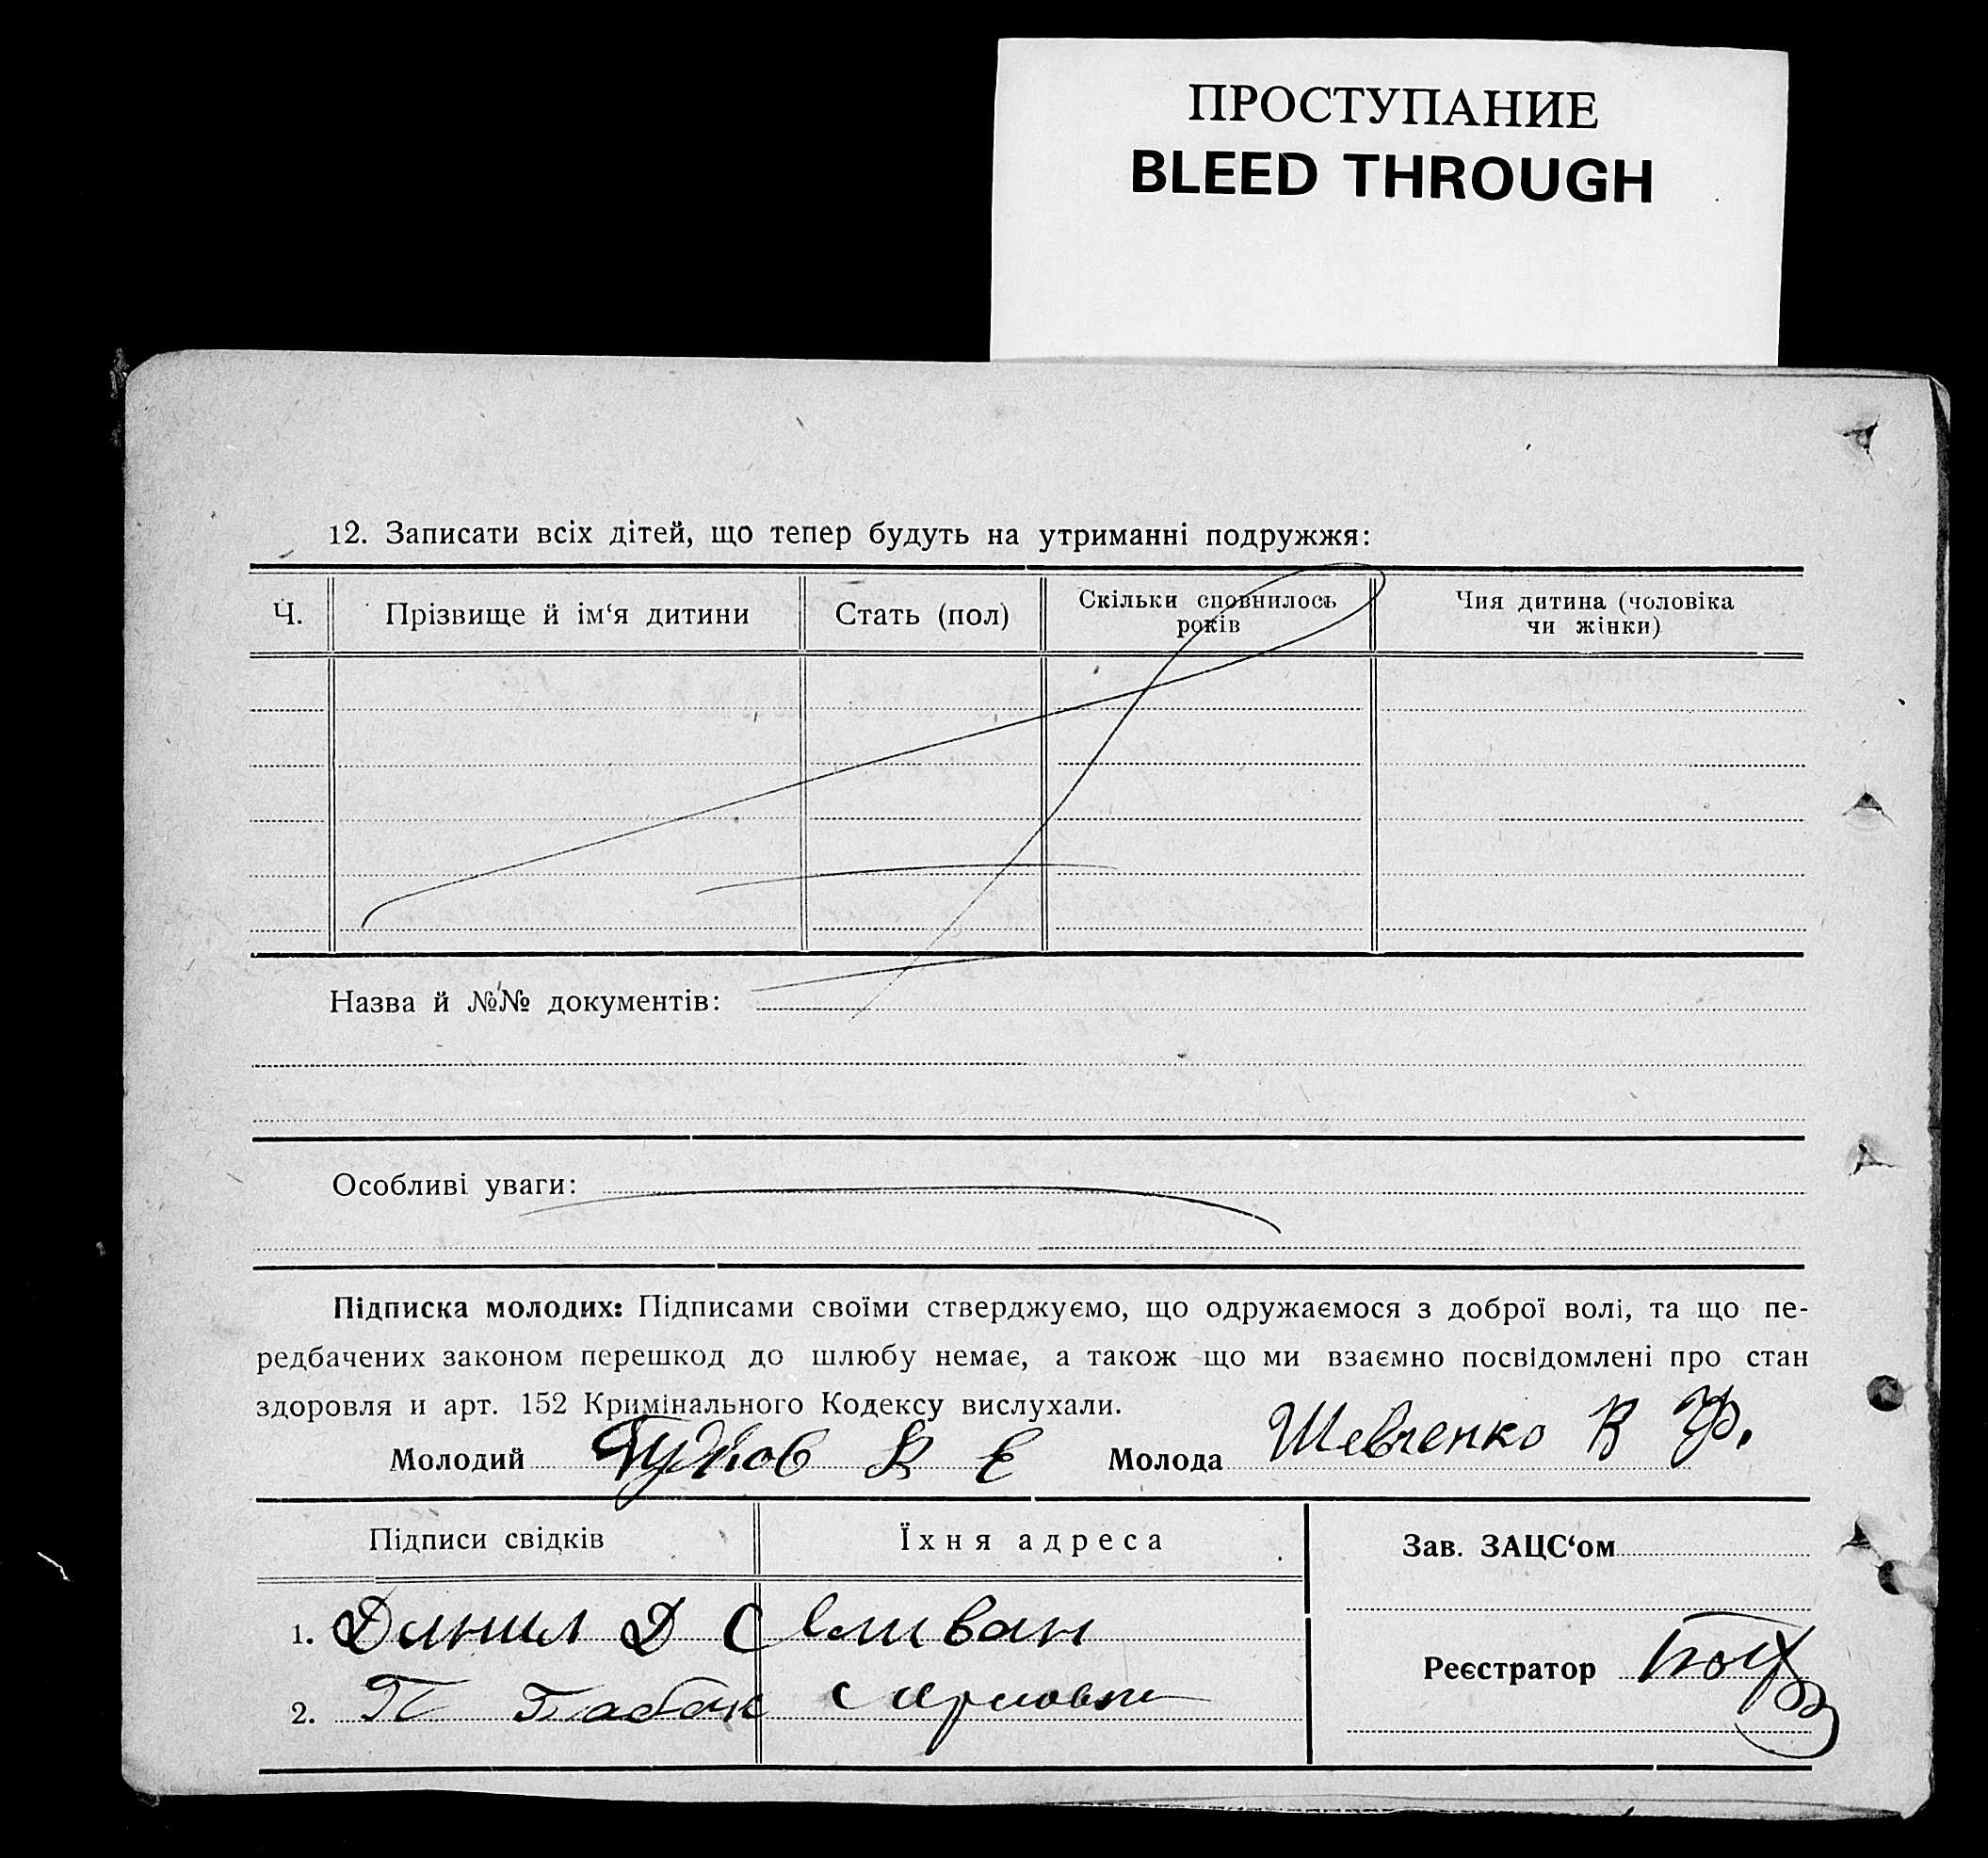 ПРОСТУПАНИЕ
BLEED THROUGH
12. Записати всіх дітей, що тепер будуть на утриманні подружжя:
Ч. Прізвище й ім‘я дитини Стать (пол) Скільки сповнилось років Чия дитина (чоловіка чи жінки)
Назва й №№ документів:
Особливі уваги:
Підписка молодих: Підписами своїми стверджуємо, що одружаємося з доброї волі, та що пе-
редбачених законом перешкод до шлюбу немає, а також що ми взаємно посвідомлені про стан
здоровля и арт. 152 Кримінального Кодексу вислухали.
Молодий Молода Шевченко В Ф.
Підписи свідків Їхня адреса Зав. ЗАЦС‘ом
1. Данил Д Селиван
Реєстратор
2. П Бабак